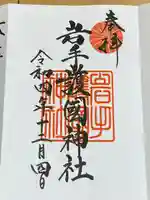 奉拝
岩手護國神社
令和四年十二月四日